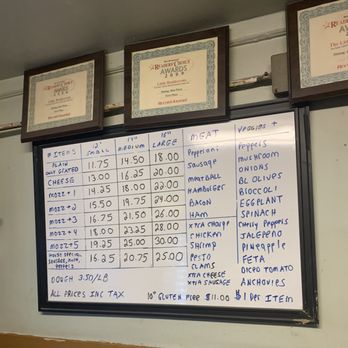 READERS CHOICE
AWARDS
READERS CHOICE
AWARDS
2009
READERS CHOICE
AWARDS
# ITEMS 12" SMALL 14" MEDIUM 16" LARGE MEAT VEGGIES +
PLAIN 11.75 14.50 18.00 Pepperoni Peppers
CHEESE 13.00 16.25 20.00 Sausage mushroom
mozz + 1 14.25 18.00 22.00 MEATBALL ONIONS
mozz + 2 15.50 19.75 24.00 Hamburger BL OLIVES
mozz + 3 16.75 21.50 26.00 BACON BROCCOLI
mozz + 4 18.00 23.25 28.00 HAM EGGPLANT
mozz + 5 19.25 25.00 30.00 XTRA CHARGE SPINACH
HOUSE SPECIAL 16.25 20.75 25.00 CHICKEN CHERRY PEPPERS
Shrimp JALEPENO
PESTO Pineapple
CLAMS FETA
XTRA CHEESE DICED TOMATO
XTRA SAUSAGE ANCHOVIES
DOUGH 3.50/LB
ALL PRICES INC TAX 10" GLUTEN FREE $11.00 $1 PER ITEM